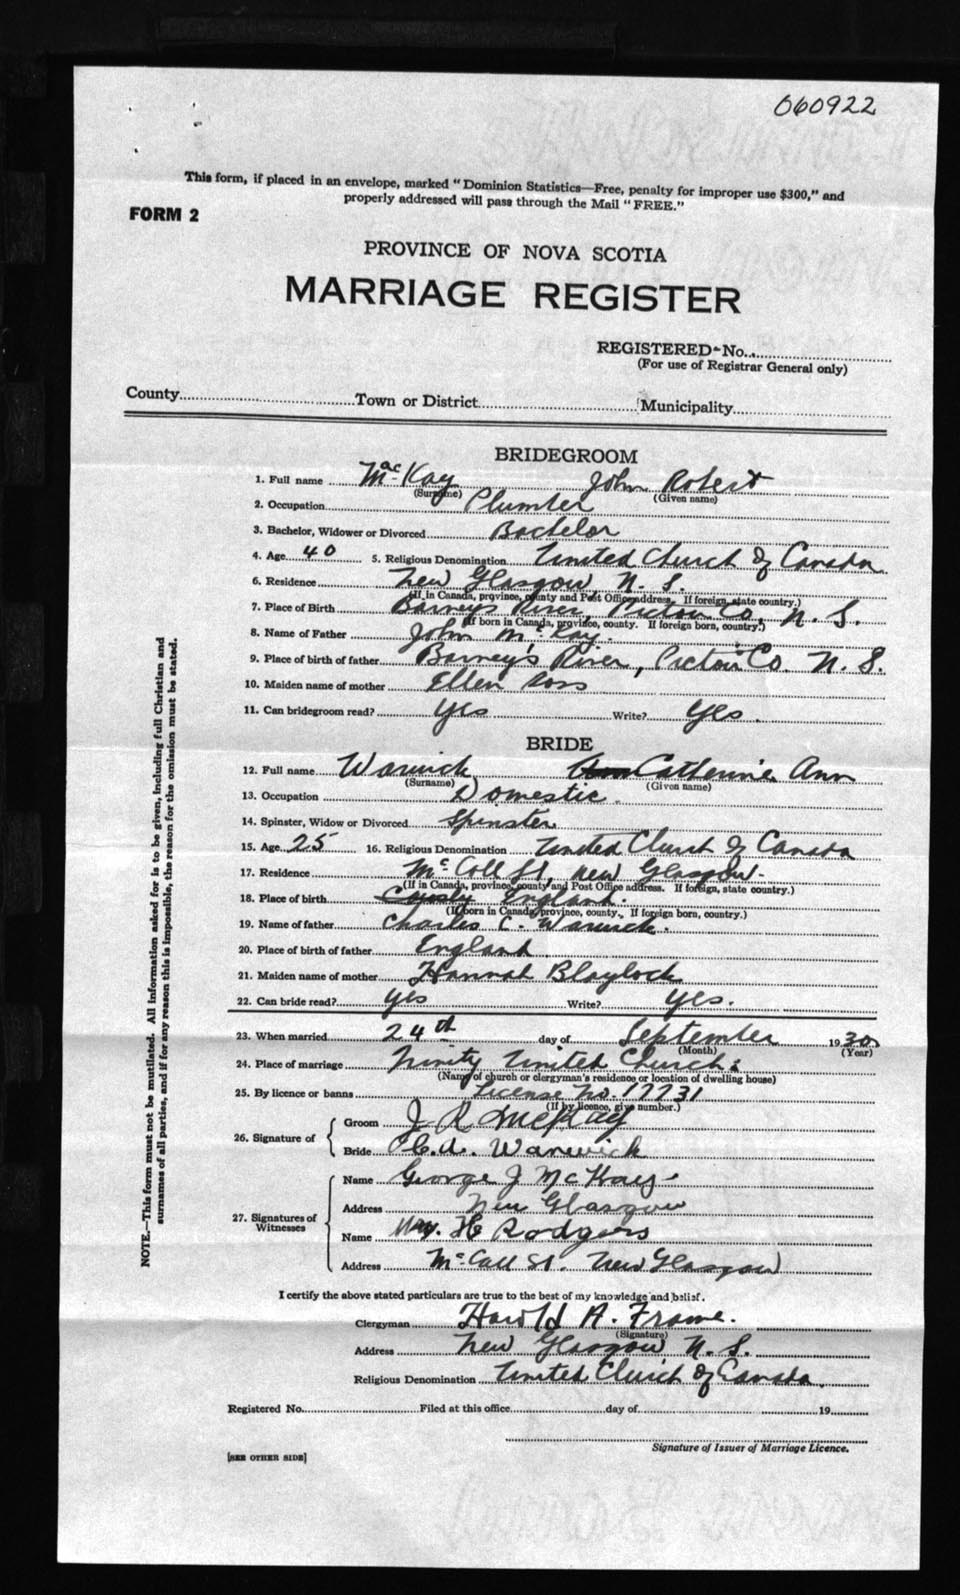 060922
This form, if placed in an envelope, marked "Dominion Statistics—Free, penalty for improper use $300," and
properly addressed will pass through the Mail "FREE."
FORM 2
PROVINCE OF NOVA SCOTIA
MARRIAGE REGISTER
REGISTERED No.
(For use of Registrar General only)
County Town or District Municipality
BRIDEGROOM
1. Full name MacKay John Robert
(Surname) (Given name)
2. Occupation Plumber
3. Bachelor, Widower or Divorced Bachelor
4. Age 40 5. Religious Denomination United Church of Canada
6. Residence New Glasgow, N. S.
(If in Canada, province, county and Post Office address. If foreign, state country.)
7. Place of Birth Barneys River, Pictou Co, N. S.
(If born in Canada, province, county. If foreign born, country.)
8. Name of Father John McKay.
9. Place of birth of father Barney's River, Pictou Co. N. S.
10. Maiden name of mother Ellen Ross
11. Can bridegroom read? yes Write? yes.
BRIDE
12. Full name Warwick Catherine Ann
(Surname) (Given name)
13. Occupation Domestic.
14. Spinster, Widow or Divorced Spinster
15. Age 25 16. Religious Denomination United Church of Canada
17. Residence McColl St, New Glasgow-
(If in Canada, province, county and Post Office address. If foreign, state country.)
18. Place of birth England.
(If born in Canada, province, county. If foreign born, country.)
19. Name of father Charles C. Warwick.
20. Place of birth of father England
21. Maiden name of mother Hannah Blaylock
22. Can bride read? yes Write? yes.
23. When married 24th day of September 1930
(Month) (Year)
24. Place of marriage Trinity United Church
(Name of church or clergyman's residence or location of dwelling house)
25. By licence or banns License No. 17731
(If by licence, give number.)
26. Signature of Groom J R McKay
Bride C. A. Warwick
27. Signatures of Witnesses Name George J McKay
Address New Glasgow
Name H Rodgers
Address McCall St. New Glasgow
I certify the above stated particulars are true to the best of my knowledge and belief.
Clergyman Harold A. Frame.
(Signature)
Address New Glasgow N. S.
Religious Denomination United Church of Canada
Registered No. Filed at this office day of 19
Signature of Issuer of Marriage Licence.
[SEE OTHER SIDE]
NOTE.—This form must not be mutilated. All information asked for is to be given, including full Christian and
surnames of all parties, and if for any reason this is impossible, the reason for the omission must be stated.